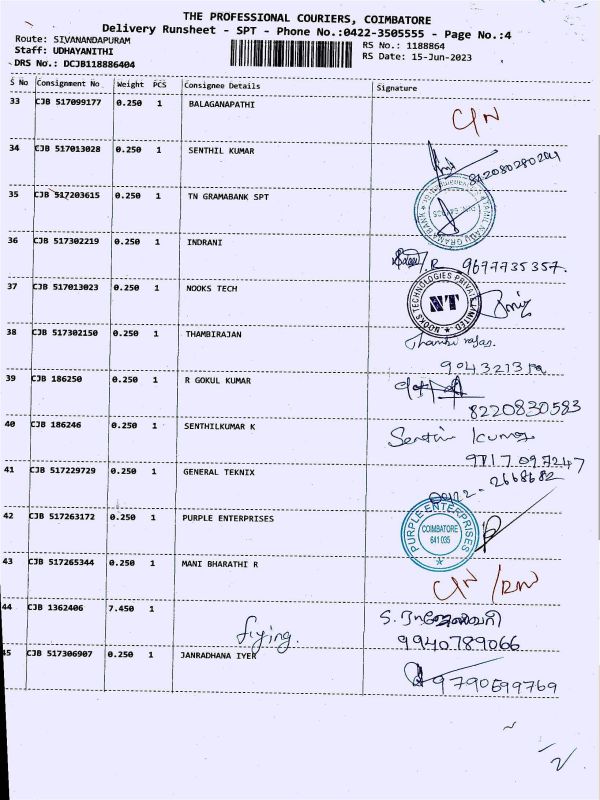 THE PROFESSIONAL COURIERS, COIMBATORE
Delivery Runsheet - SPT - Phone No.:0422-3505555 - Page No.:4
Route: SIVANANDAPURAM
RS No.: 1188864
Staff: UDHAYANITHI
RS Date: 15-Jun-2023
DRS No.: DCJB118886404
S No Consignment No Weight PCS Consignee Details Signature
33 CJB 517099177 0.250 1 BALAGANAPATHI
C/N
34 CJB 517013028 0.250 1 SENTHIL KUMAR
35 CJB 517203615 0.250 1 TN GRAMABANK SPT
TAMIL NADU GRAMA BANK
36 CJB 517302219 0.250 1 INDRANI
9677735357.
37 CJB 517013023 0.250 1 NOOKS TECH
NOOKS TECHNOLOGIES PRIVATE LIMITED
NT
38 CJB 517302150 0.250 1 THAMBIRAJAN
Thambi rajan.
39 CJB 186250 0.250 1 R GOKUL KUMAR
8220830583
40 CJB 186246 0.250 1 SENTHILKUMAR K
Senthil Kumar
41 CJB 517229729 0.250 1 GENERAL TEKNIX
0422-2668682
42 CJB 517263172 0.250 1 PURPLE ENTERPRISES
PURPLE ENTERPRISES
COIMBATORE
641 035
43 CJB 517265344 0.250 1 MANI BHARATHI R
C/N
44 CJB 1362406 7.450 1
flying.
9940789066
45 CJB 517306907 0.250 1 JANRADHANA IYER
9790599769